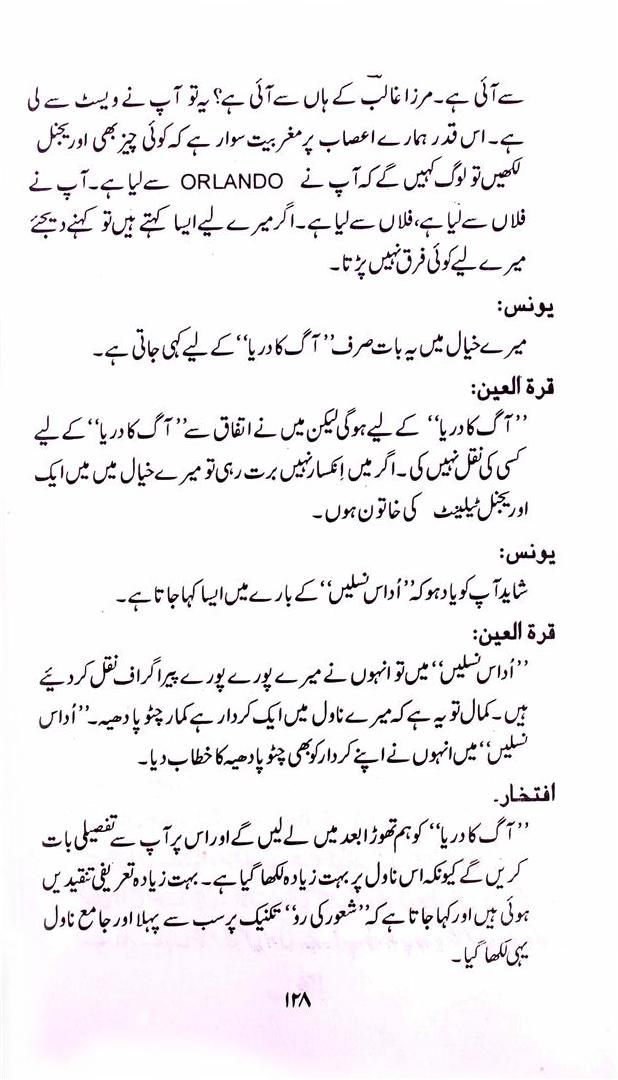 سے آئی ہے۔ مرزا غالبؔ کے ہاں سے آئی ہے؟ یہ تو آپ نے ویسٹ سے لی
ہے۔ اس قدر ہمارے اعصاب پر مغربیت سوار ہے کہ کوئی چیز بھی اوریجنل
لکھیں تو لوگ کہیں گے کہ آپ نے ORLANDO سے لیا ہے۔ آپ نے
فلاں سے لیا ہے، فلاں سے لیا ہے۔ اگر میرے لیے ایسا کہتے ہیں تو کہنے دیجئے
میرے لیے کوئی فرق نہیں پڑتا۔
یونس:
میرے خیال میں یہ بات صرف ”آگ کا دریا“ کے لیے کہی جاتی ہے۔
قرۃ العین:
”آگ کا دریا“ کے لیے ہوگی لیکن میں نے اتفاق سے ”آگ کا دریا“ کے لیے
کسی کی نقل نہیں کی۔ اگر میں اِنکسار نہیں برت رہی تو میرے خیال میں میں ایک
اوریجنل ٹیلینٹ کی خاتون ہوں۔
یونس:
شاید آپ کو یاد ہو کہ ”اُداس نسلیں“ کے بارے میں ایسا کہا جاتا ہے۔
قرۃ العین:
”اُداس نسلیں“ میں تو انہوں نے میرے پورے پورے پیراگراف نقل کر دیئے
ہیں۔ کمال تو یہ ہے کہ میرے ناول میں ایک کردار ہے کمار چٹوپادھیہ۔ ”اُداس
نسلیں“ میں انہوں نے اپنے کردار کو بھی چٹوپادھیہ کا خطاب دیا۔
افتخار۔
”آگ کا دریا“ کو ہم تھوڑا بعد میں لے لیں گے اور اس پر آپ سے تفصیلی بات
کریں گے کیونکہ اس ناول پر بہت زیادہ لکھا گیا ہے۔ بہت زیادہ تعریفی تنقیدیں
ہوئی ہیں اور کہا جاتا ہے کہ ”شعور کی رو“ تکنیک پر سب سے پہلا اور جامع ناول
یہی لکھا گیا۔
۱۲۸